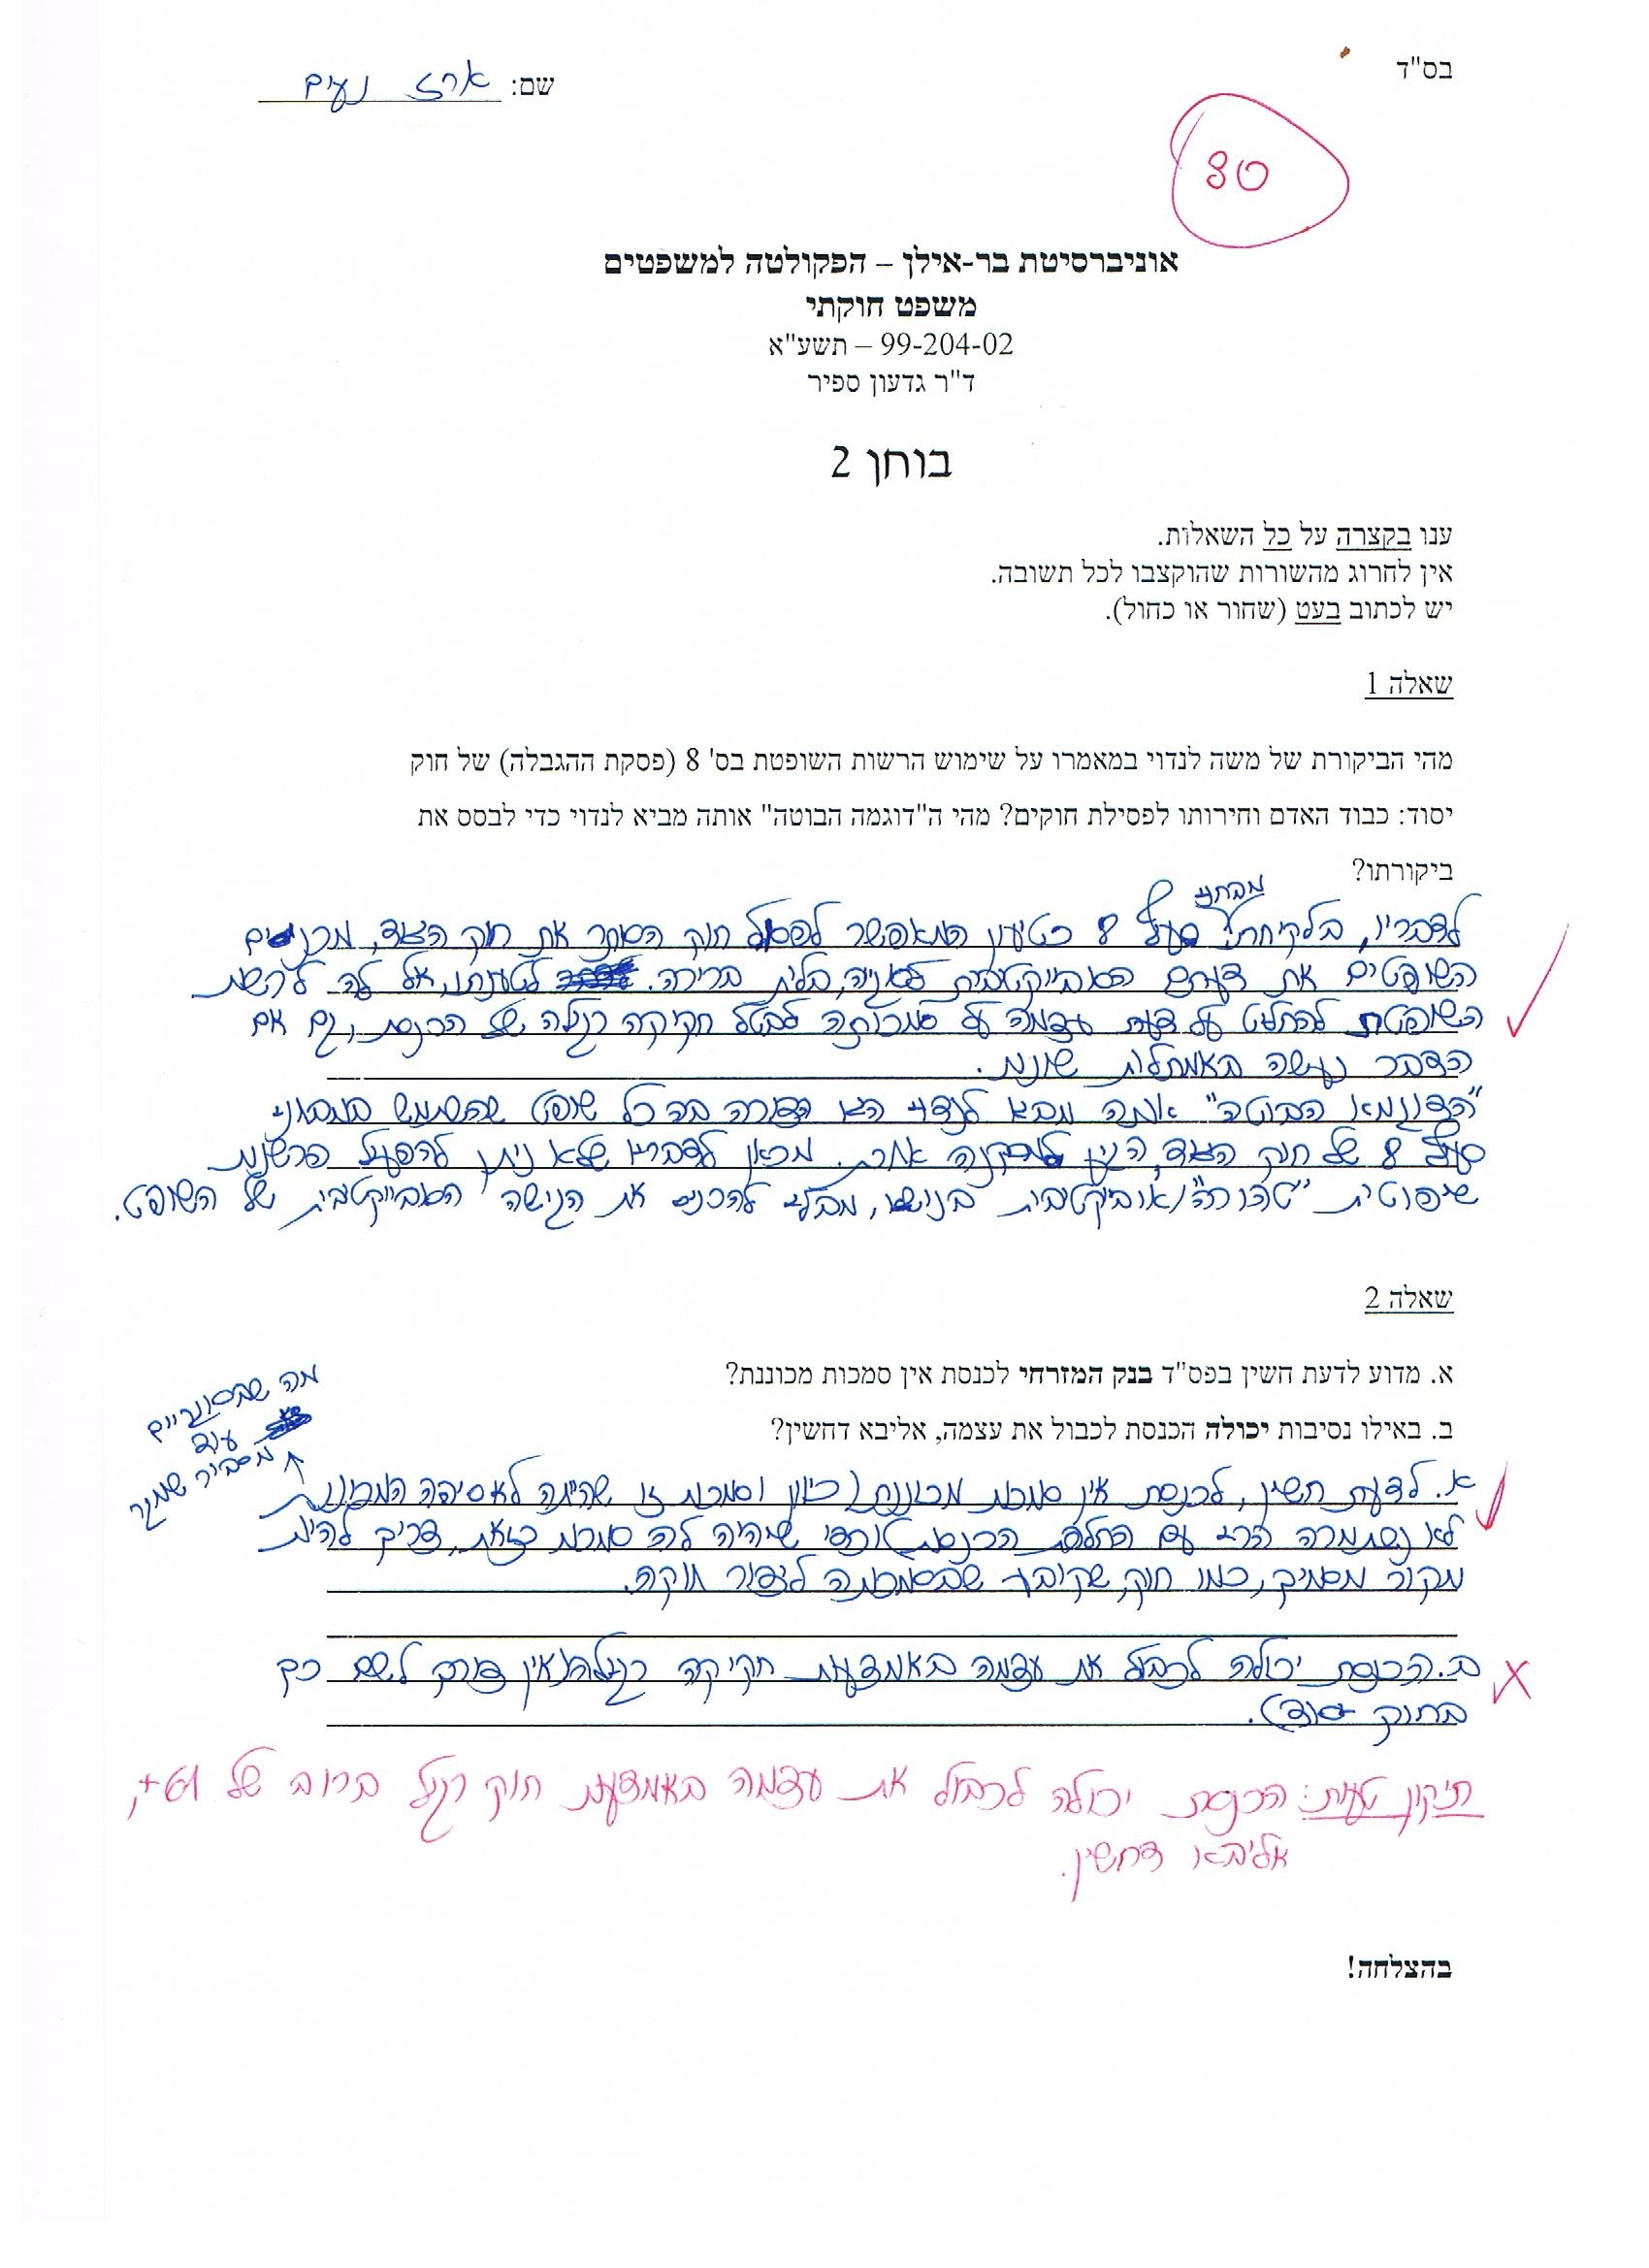 בס"ד
שם: ארז נעים
80
אוניברסיטת בר-אילן – הפקולטה למשפטים
משפט חוקתי
99-204-02 – תשע"א
ד"ר גדעון ספיר
בוחן 2
ענו בקצרה על כל השאלות.
אין לחרוג מהשורות שהוקצבו לכל תשובה.
יש לכתוב בעט (שחור או כחול).
שאלה 1
מהי הביקורת של משה לנדוי במאמרו על שימוש הרשות השופטת בס' 8 (פסקת ההגבלה) של חוק
יסוד: כבוד האדם וחירותו לפסילת חוקים? מהי ה"דוגמה הבוטה" אותה מביא לנדוי כדי לבסס את
ביקורתו?
לדבריו, בלקיחת סעיף 8 כטיעון המאפשר לפסול חוק הסותר את חוק היסוד, מכניסים
השופטים את דעתם הסובייקטיבית לסוגיה, בלית ברירה. לטענתו, אל לה לרשות
השופטת להחליט על דעת עצמה על סמכותה לבטל חקיקה רגילה של הכנסת, גם אם
הדבר נעשה באמתלות שונות.
"הדוגמא הבוטה" אותה מביא לנדוי היא הצורה בה כל שופט שהשתמש במבחני
סעיף 8 של חוק היסוד, הגיע למסקנה אחרת. מכאן לדבריו שלא ניתן להפעיל פרשנות
שיפוטית "טהורה"/אובייקטיבית בנושא, מבלי להכניס את הגישה הסובייקטיבית של השופט.
שאלה 2
א. מדוע לדעת חשין בפס"ד בנק המזרחי לכנסת אין סמכות מכוננת?
ב. באילו נסיבות יכולה הכנסת לכבול את עצמה, אליבא דחשין?
מה שבסוגריים
עוד
מסביר שמגר
א. לדעת חשין, לכנסת אין סמכות מכוננת (כיוון וסמכות זו שהייתה לאסיפה המכוננת
לא נשתמרה הרי עם החלפת הכנסת) וכדי שיהיה לה סמכות כזאת, צריך להיות
מקור מסמיך, כמו חוק, שקובע שבסמכותה ליצור חוקה.
ב. הכנסת יכולה לכבול את עצמה באמצעות חקיקה רגילה (אין צורך לשם כך
בחוק יסוד).
תיקון טעות: הכנסת יכולה לכבול את עצמה באמצעות חוק רגיל ברוב של 61+,
אליבא דחשין.
בהצלחה!